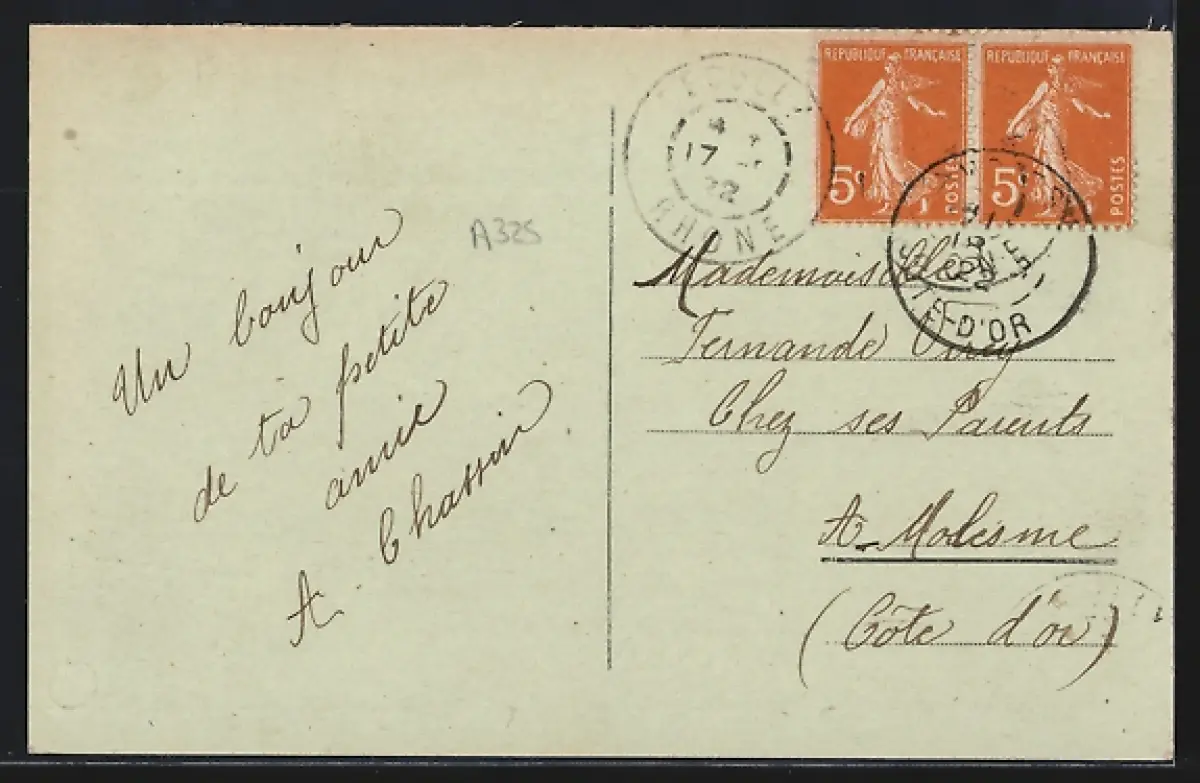 Un bonjour
de ta petite
amie
A. Chassin
A325
REPUBLIQUE FRANÇAISE
5c POSTES
REPUBLIQUE FRANÇAISE
5c POSTES
17
22
RHONE
D'OR
Mademoiselle
Fernande
Chez ses Parents
A Molesme
(Côte d'or)